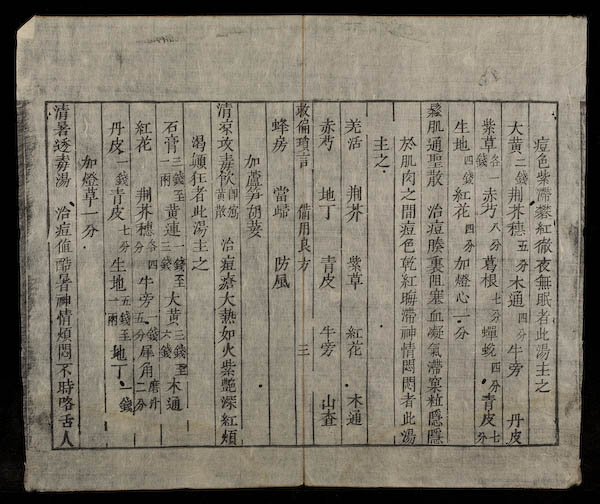 痘色紫滯艷紅徹夜無眠者此湯主之
大黃二錢 荆芥穗五分 木通四分 牛旁 丹皮
紫草各一錢 赤芍八分 葛根七分 蟬蛻四分 青皮七分
生地四錢 紅花四分 加燈心一分
鬆肌通聖散 治痘腠裏阻塞血凝氣滯窠粒隱隱
於肌肉之間痘色乾紅晦滯神情悶悶者此湯
主之
羌活 荆芥 紫草 紅花 木通
赤芍 地丁 青皮 牛旁 山查
救偏瑣言 備用良方 三
蜂房 當歸 防風
加蘆笋胡荽
清凉攻毒飲 黃散 治痘瘡大熱如火紫艷深紅煩
渴顛狂者此湯主之
石膏三錢至一兩 黃連一錢至三錢 大黃三錢至六錢 木通
紅花 荆芥穗各四分 牛旁一錢五分 犀角磨汁二分
丹皮一錢 青皮七分 生地五錢至一兩 地丁一錢
加燈草一分
清暑透毒湯 治痘值酷暑神情煩悶不時咯舌人